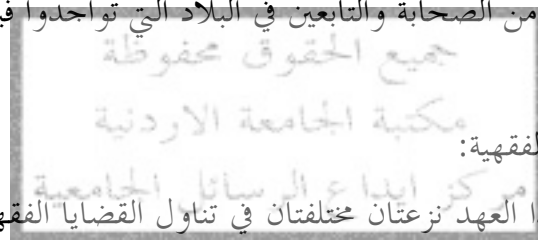 من الصحابة والتابعين في البلاد التي تواجدوا
جميع الحقوق محفوظة
مكتبة الجامعة الاردنية
لفقهية:
مركز ايداع الرسائل الجامعية
العهد نزعتان مختلفتان في تناول القضايا